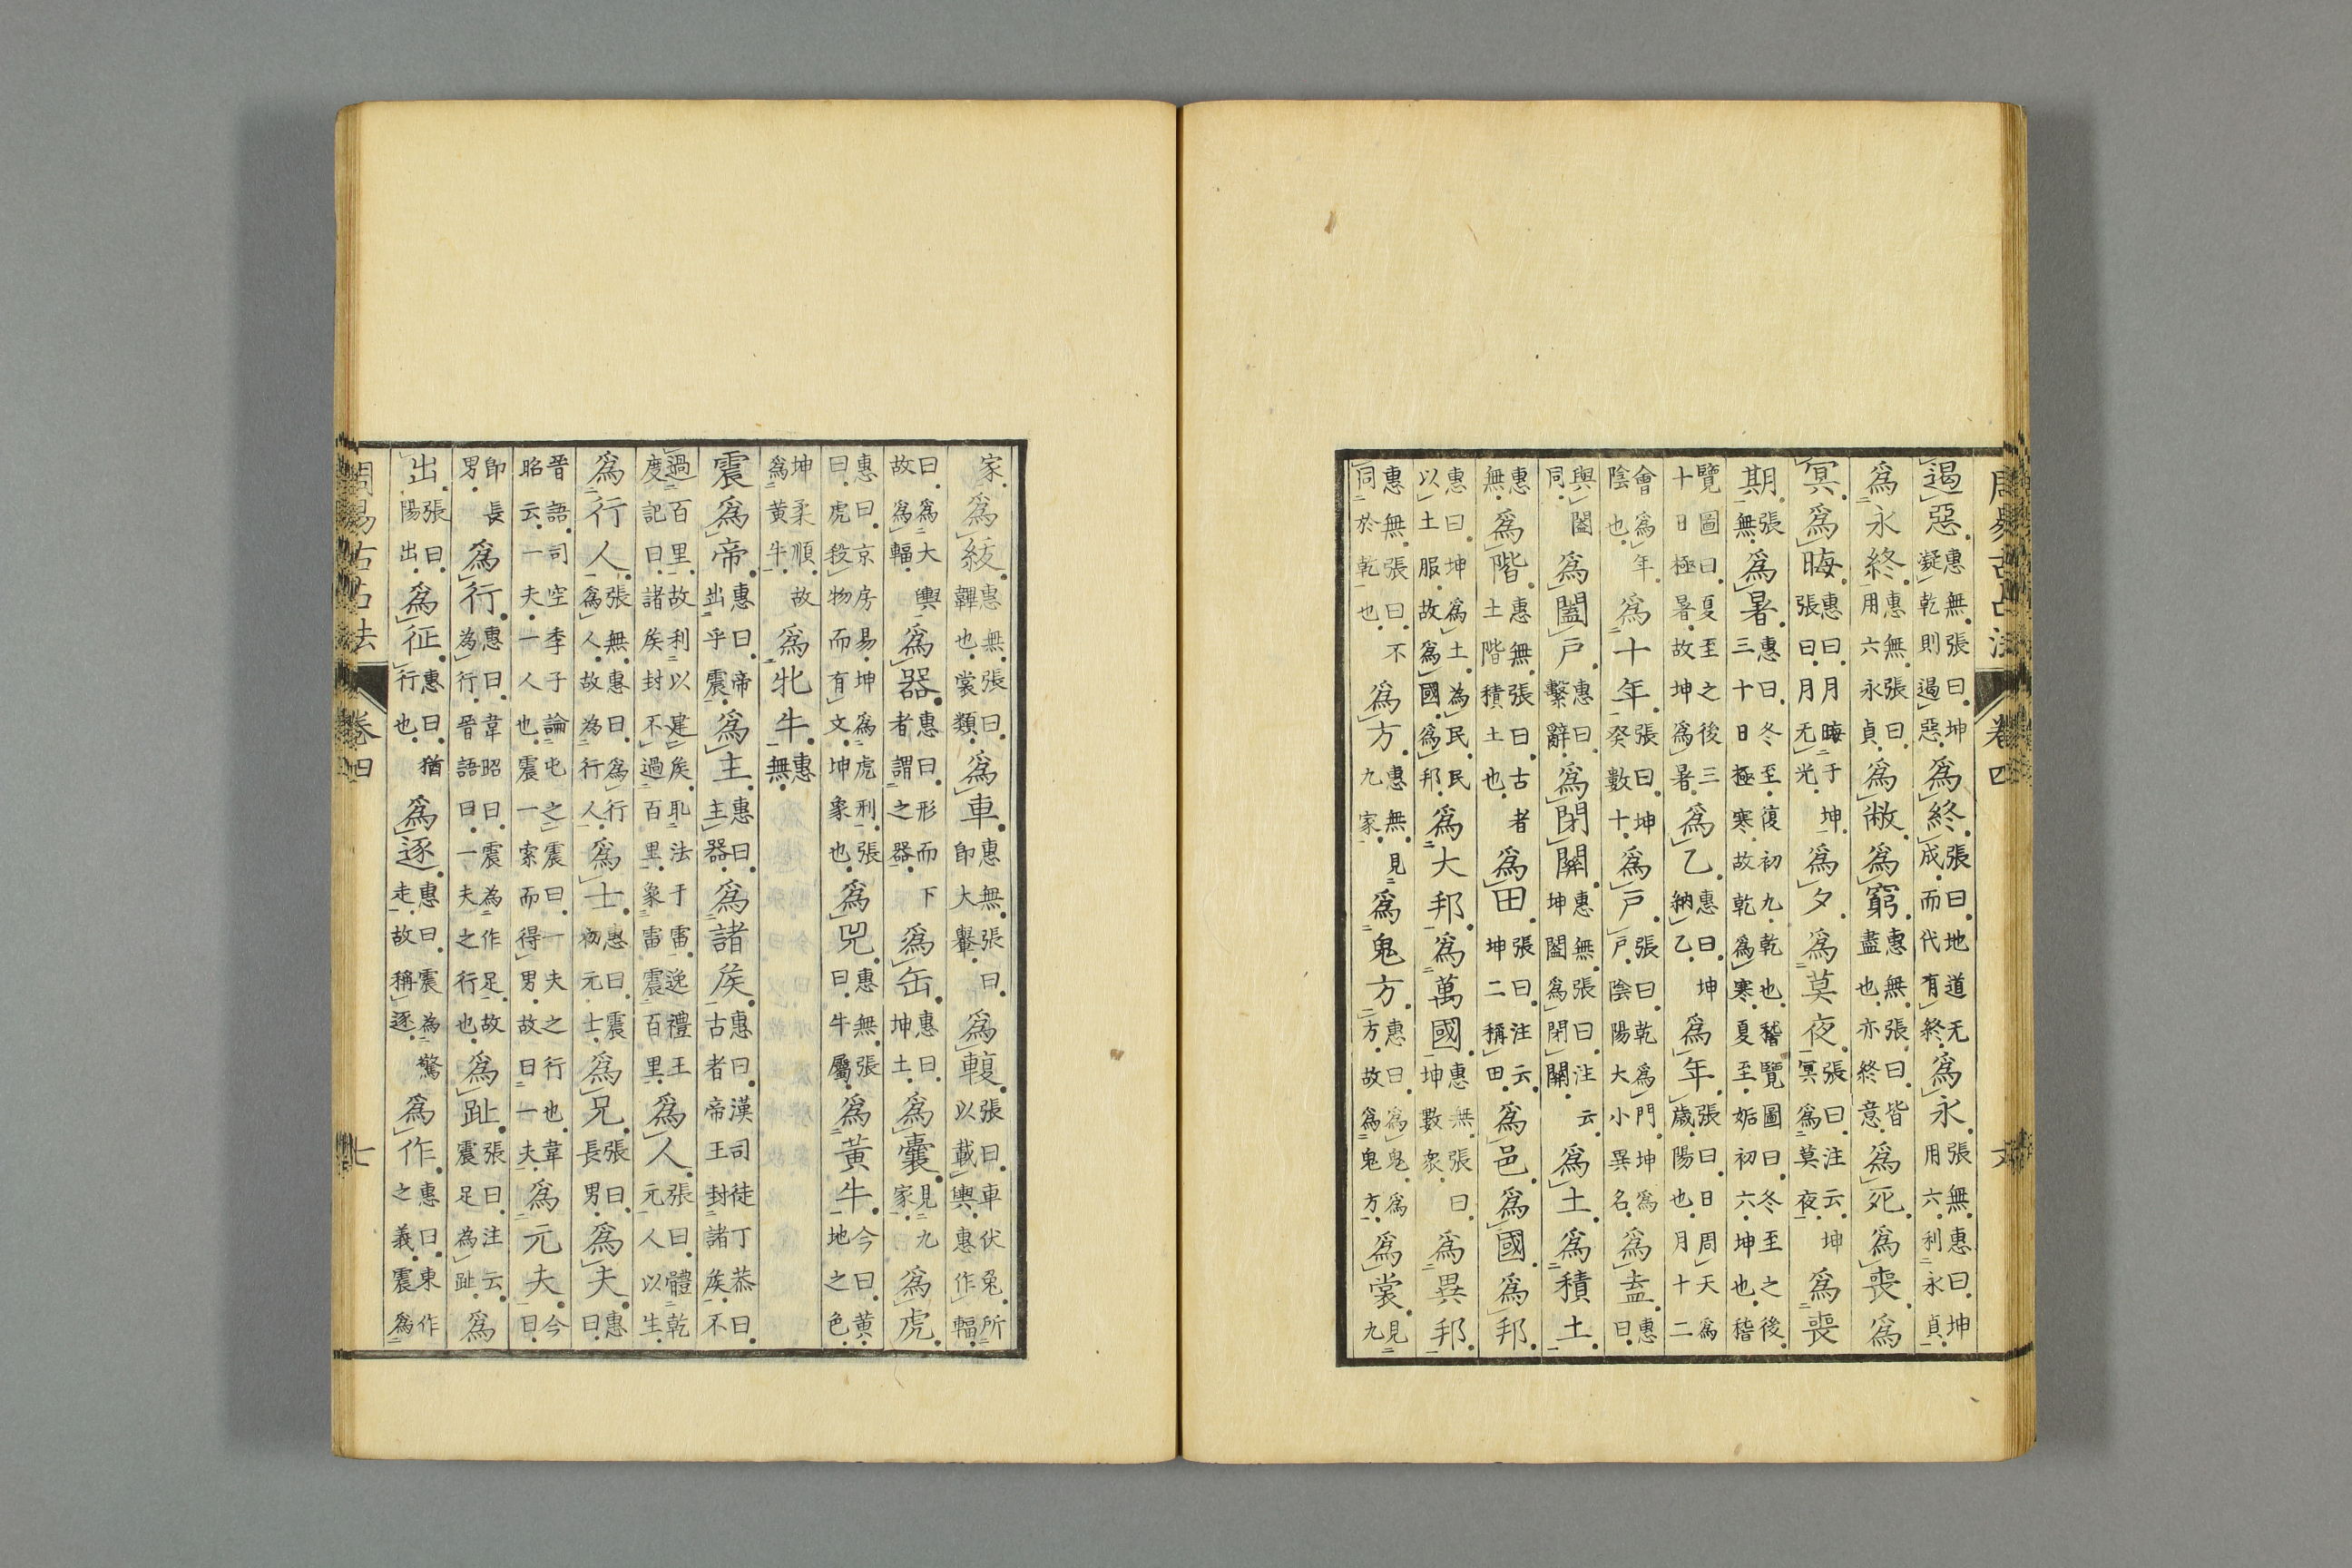 周易古占法 卷四
遏惡惠無張曰坤凝乾則遏惡爲終張曰地道无成而代有終爲永張無惠曰坤用六利永貞
爲永終惠無張曰用六永貞爲敝爲窮惠無張曰皆盡也亦終意爲死爲喪爲
冥爲晦惠曰月晦于坤張曰月无光爲夕爲莫夜張曰注云坤冥爲莫夜爲喪
期張無爲暑惠曰冬至復初九乾也稽覽圖曰冬至之後三十日極寒故乾爲寒夏至姤初六坤也稽
覽圖曰夏至之後三十日極暑故坤爲暑爲乙惠曰坤納乙爲年張曰日周天爲歲陽也月十二
會爲年陰也爲十年張曰坤癸數十爲戸張曰乾爲門坤爲戸陰陽大小異名爲盍惠曰
與闔同爲闔戸惠曰繫辭爲閉關惠無張曰注云坤闔爲閉關爲土爲積土
惠無爲階惠無張曰古者土階積土也爲田張曰注云坤二稱田爲邑爲國爲邦
惠曰坤爲土爲民民以土服故爲國爲邦爲大邦爲萬國惠無張曰坤數衆爲異邦
惠無張曰不同於乾也爲方惠無見九家爲鬼方惠曰爲鬼爲方故爲鬼方爲裳見九
家爲紱惠無張曰韠也裳類爲車惠無張曰即大轝爲輹張曰車伏兔所以載輿惠作輻
曰爲大輿故爲輻爲器惠曰形而下者謂之器爲缶惠曰坤土爲囊見九家爲虎
惠曰京房易坤爲虎刑張曰虎殺物而有文坤象也爲兕惠無張曰牛屬爲黃牛今曰黃地之色
坤柔順故爲黃牛爲牝牛惠無
震爲帝惠曰帝出乎震爲主惠曰主器爲諸矦惠曰漢司徒丁恭曰古者帝王封諸矦不
過百里故利以建矦恥法于雷逸禮王度記曰諸矦封不過百里象雷震百里爲人張曰體乾元人人以生
爲行人張無惠曰爲行人爲人故爲行人爲士惠曰震初元士爲兄張曰長男爲夫惠曰
晉語司空季子論屯之震曰一夫之行也韋昭云一夫一人也震一索而得男故曰一夫爲元夫今曰
即長男爲行惠曰韋昭曰震為作足故為行晉語曰一夫之行也爲趾張曰注云震足為趾爲
出張曰陽出爲征惠曰猶行也爲逐惠曰震為驚走故稱逐爲作惠曰東作之義震爲
周易古占法 卷四 七